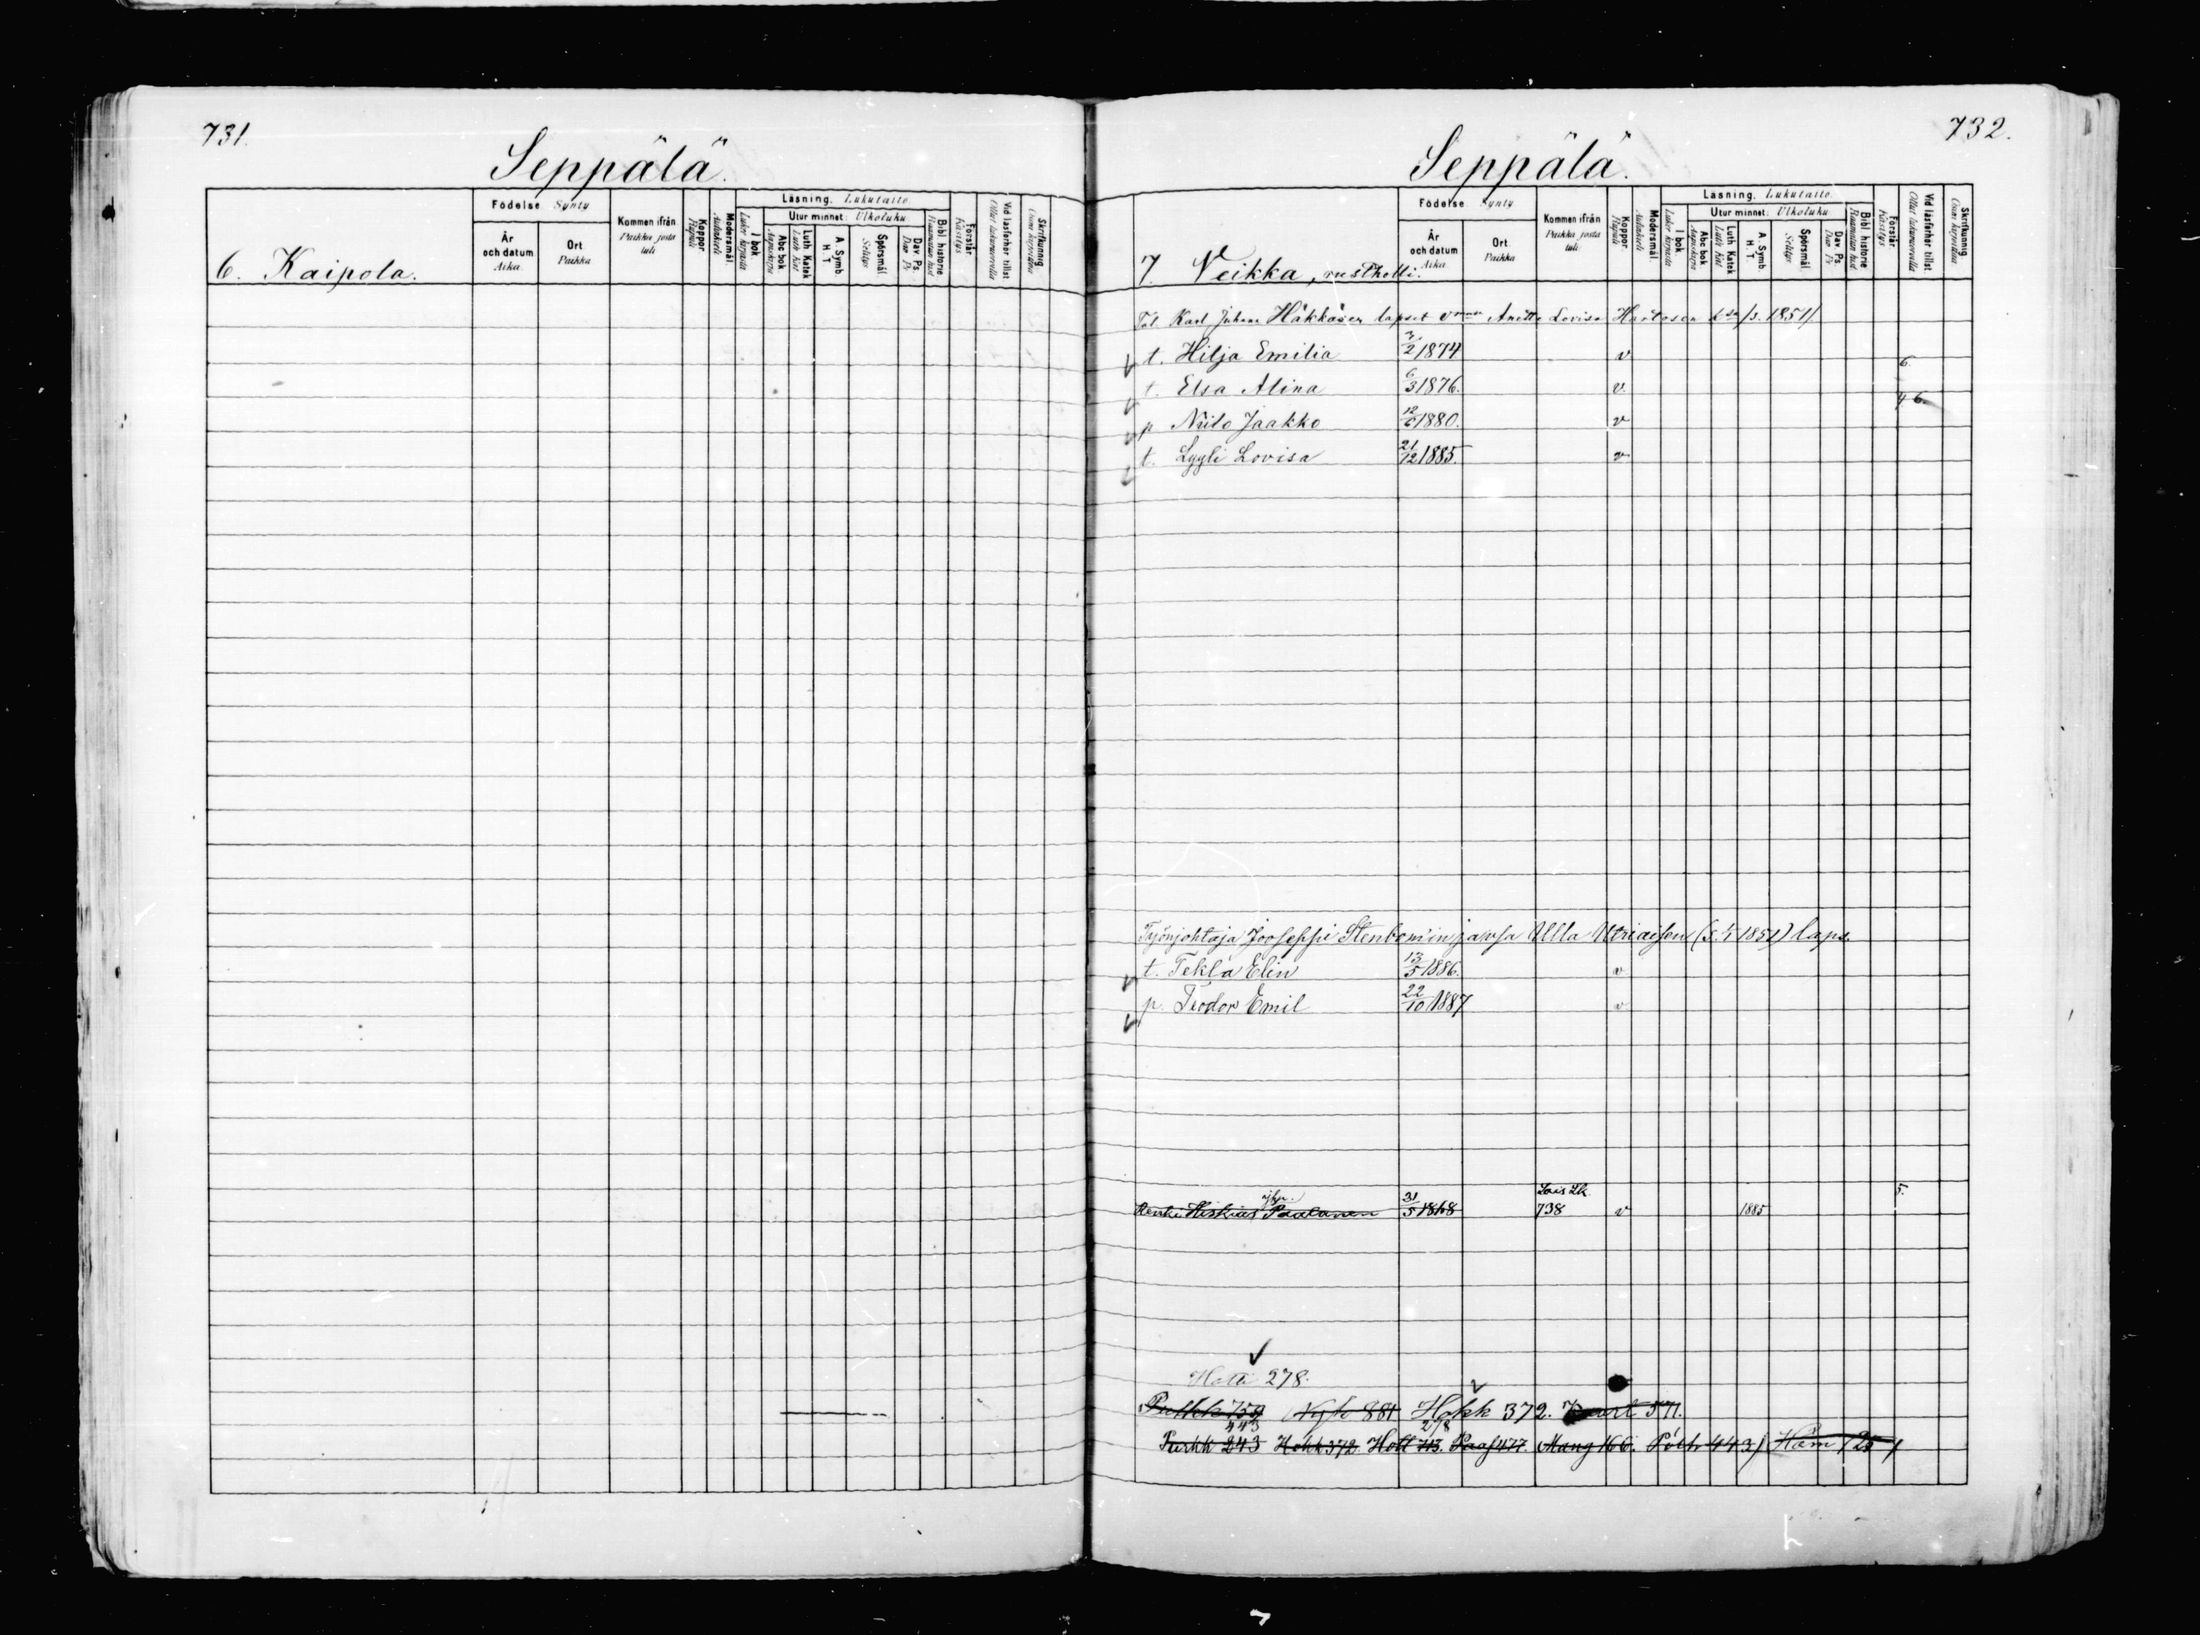 731.
Seppälä.
Födelse. Synty
Kommen ifrån
Paikka josta tuli
Koppor. Rupuli
Modersmål. Äidinkieli
Läsning. Lukutaito
I bok. Luku kirjasta
Utur minnet: Ulkoluku
Abc bok Aapiskirja
Luth Katek Luth Kat
A. Symb. H. T
Spörsmål Selitys
Dav. Ps. Dav Ps
Bibl historie Raamatun hist
Förstår. Käsitys
Vid läsförhör tillst. Ollut lukukinkereillä
Skrifkunnig Osaa kirjoittaa
År och datum Aika
Ort Paikka
6. Kaipola.
732.
Seppälä.
Födelse. Synty
Kommen ifrån
Paikka josta tuli
Koppor. Rupuli
Modersmål. Äidinkieli
Läsning. Lukutaito
I bok. Luku kirjasta
Utur minnet: Ulkoluku
Abc bok Aapiskirja
Luth Katek Luth Kat
A. Symb. H. T
Spörsmål Selitys
Dav. Ps. Dav Ps
Bibl historie Raamatun hist
Förstår. Käsitys
Vid läsförhör tillst.
Skrifkunnig Osaa kirjoittaa
År och datum Aika
Ort Paikka
7. Veikka, rustholli.
Tal. Karl Juhana Häkkäsen lapset Anette Lovisa /s. 1851/
t. Hilja Emilia 2/2 1874 v 6.
t. Elsa Alina 6/3 1876. v. 4 6.
p Niilo Jaakko 12/2 1880. v
t. Lyyli Lovisa 21/12 1885. v
Työnjohtaja Jooseppi Stenbomin ja wsa Ulla (s. 1/1 1851) laps.
t. Tekla Elin 13/5 1886. v
p. Teodor Emil 22/10 1887 v
Lois Lk. 5.
Renki Hiskias Paalanen 31/5 1868 738 v 1885
Hott 278.
Pulkk 759 Nyk 881 Hokk 372. 571.
443 278
Purkk 243 Hokk 372 Hott 713 Paaj 477 Mang 166. Pölk 443) Häm 125